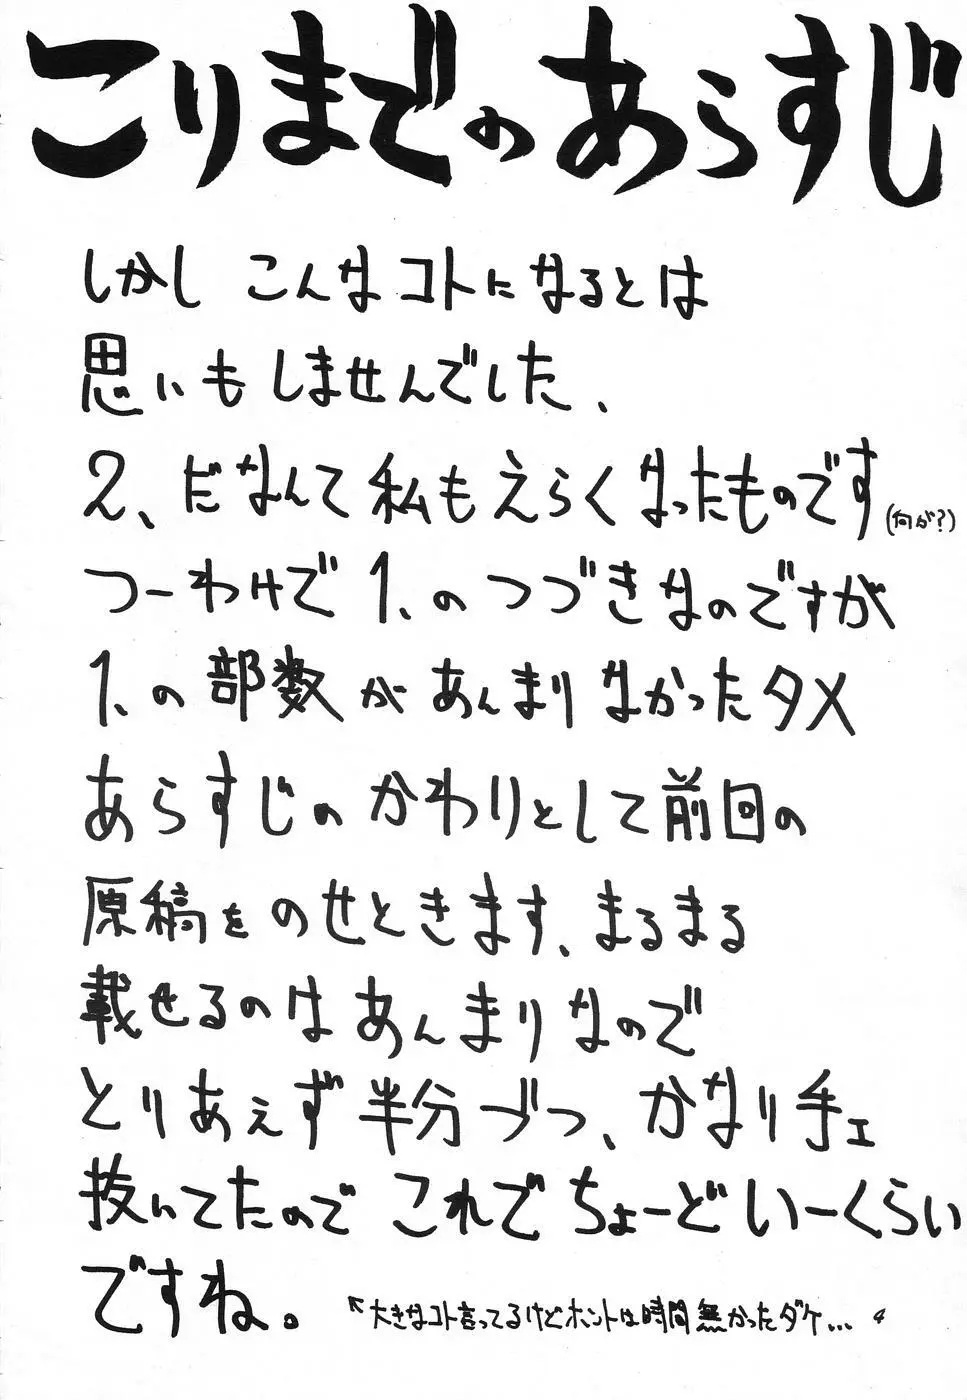 こりまでのあらすじ
しかし こんなコトになるとは
思いもしませんでした、
2、だなんて私もえらくなったものです(何が?)
つーわけで1、のつづきなのですが
1、の部数があんまりなかったタメ
あらすじのかわりとして前回の
原稿をのせときます、まるまる
載せるのはあんまりなので
とりあえず半分づつ、かなり手エ
抜いてたのでこれでちょーどいーくらい
ですね。
↖大きなコト言ってるけどホントは時間無かったダケ...
4